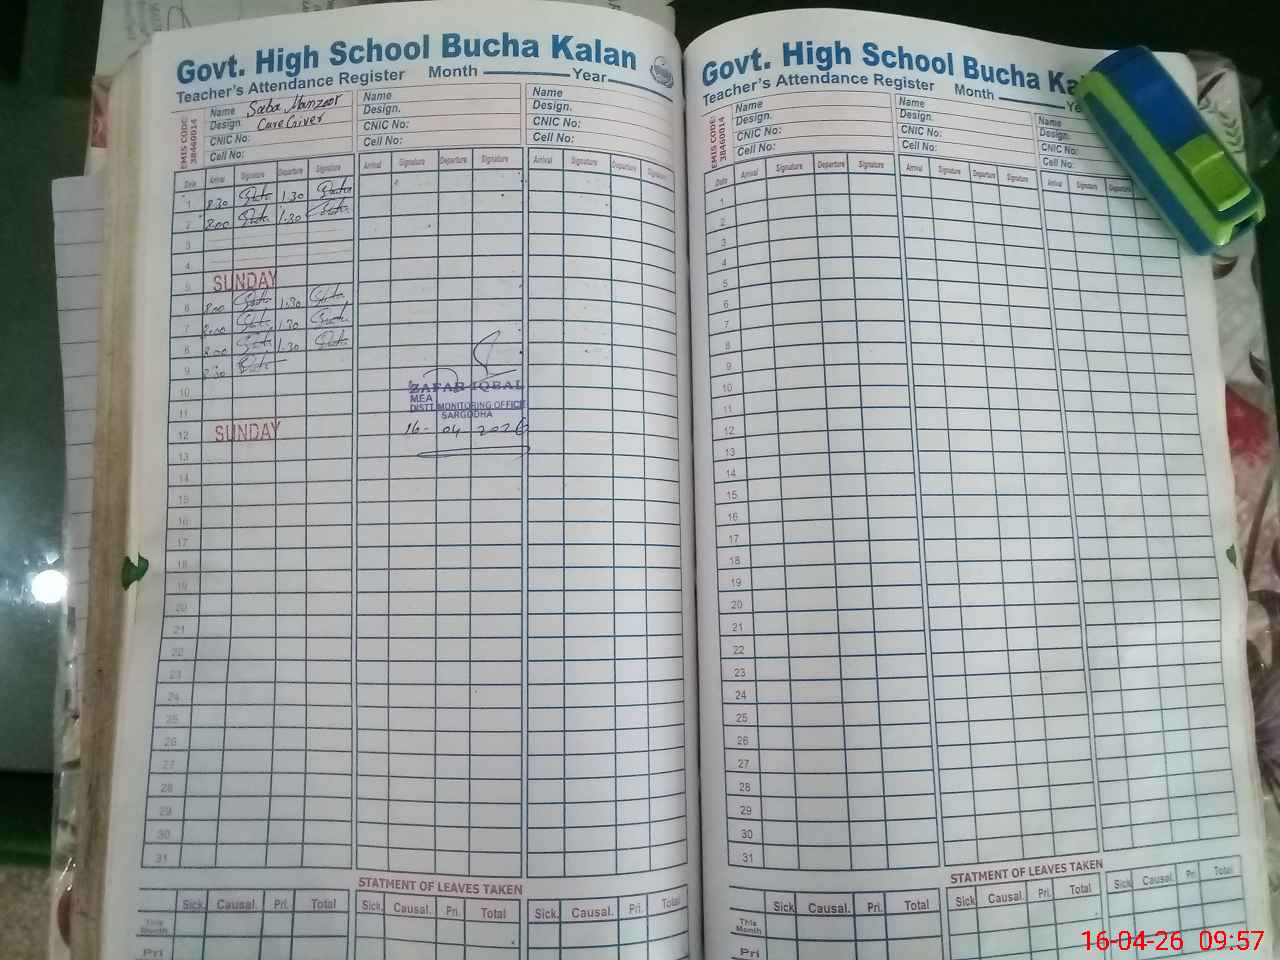 Govt. High School Bucha Kalan
Teacher's Attendance Register Month Year
EMIS CODE: 38460014
Name Saba Manzoor
Design. Care Giver
CNIC No:
Cell No:
Name
Design.
CNIC No:
Cell No:
Name
Design.
CNIC No:
Cell No:
Date Arrival Signature Departure Signature Arrival Signature Departure Signature Arrival Signature Departure Signature
1 8.30 1.30
2 8.00 1.30
3
4
5 SUNDAY
6 8.00 1.30
7 8.00 1.30
8 8.00 1.30
9
10
11
12 SUNDAY
13
14
15
16
17
18
19
20
21
22
23
24
25
26
27
28
29
30
31
ZAFAR IQBAL
MEA
DISTT MONITORING OFFICE
SARGODHA
16-04-2026
STATMENT OF LEAVES TAKEN
Sick. Causal. Pri. Total Sick. Causal. Pri. Total Sick. Causal. Pri. Total
This Month
Pri
Govt. High School Bucha Ka
Teacher's Attendance Register Month Ye
EMIS CODE: 38460014
Name
Design.
CNIC No:
Cell No:
Name
Design.
CNIC No:
Cell No:
Name
Design.
CNIC No:
Cell No:
Date Arrival Signature Departure Signature Arrival Signature Departure Signature Arrival Signature Departure
1
2
3
4
5
6
7
8
9
10
11
12
13
14
15
16
17
18
19
20
21
22
23
24
25
26
27
28
29
30
31
STATMENT OF LEAVES TAKEN
Sick. Causal. Pri. Total Sick. Causal. Pri. Total Sick. Causal. Pri Total
This Month
Pri
16-04-26 09:57